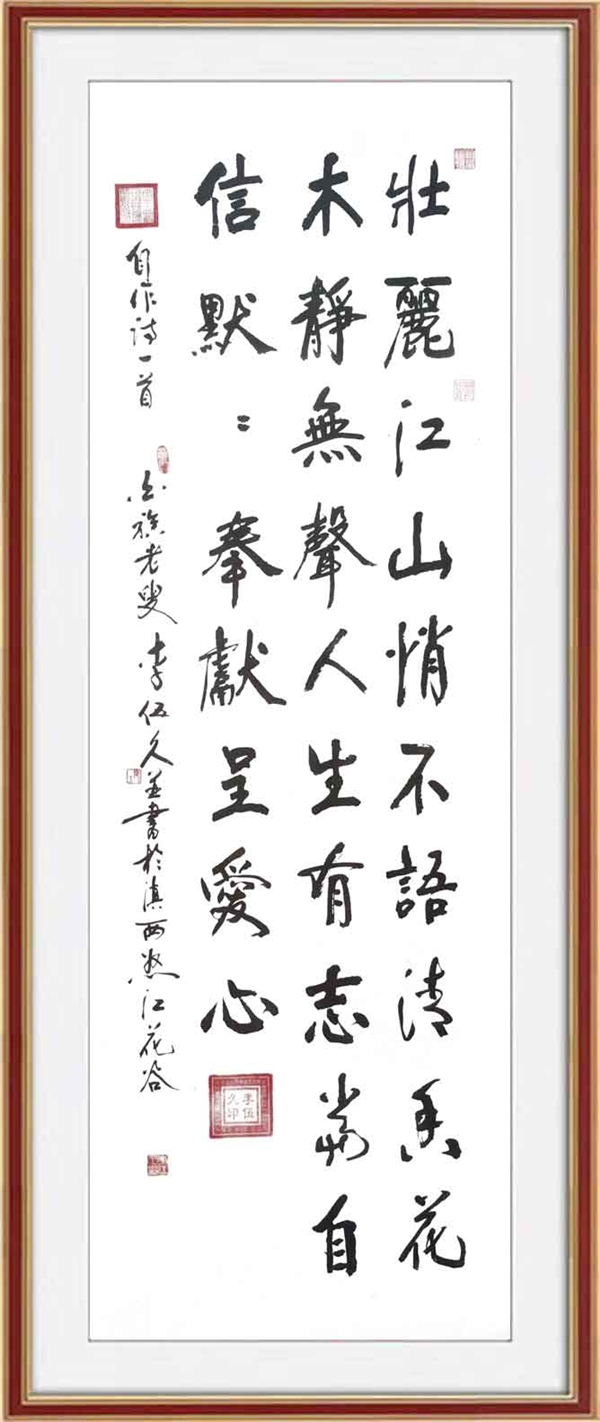 壯麗江山悄不語清香花
木靜無聲人生有志當自
信默〻奉獻呈愛心
自作詩一首 白族老叟李伍久並書於滇西怒江花谷
李伍久印